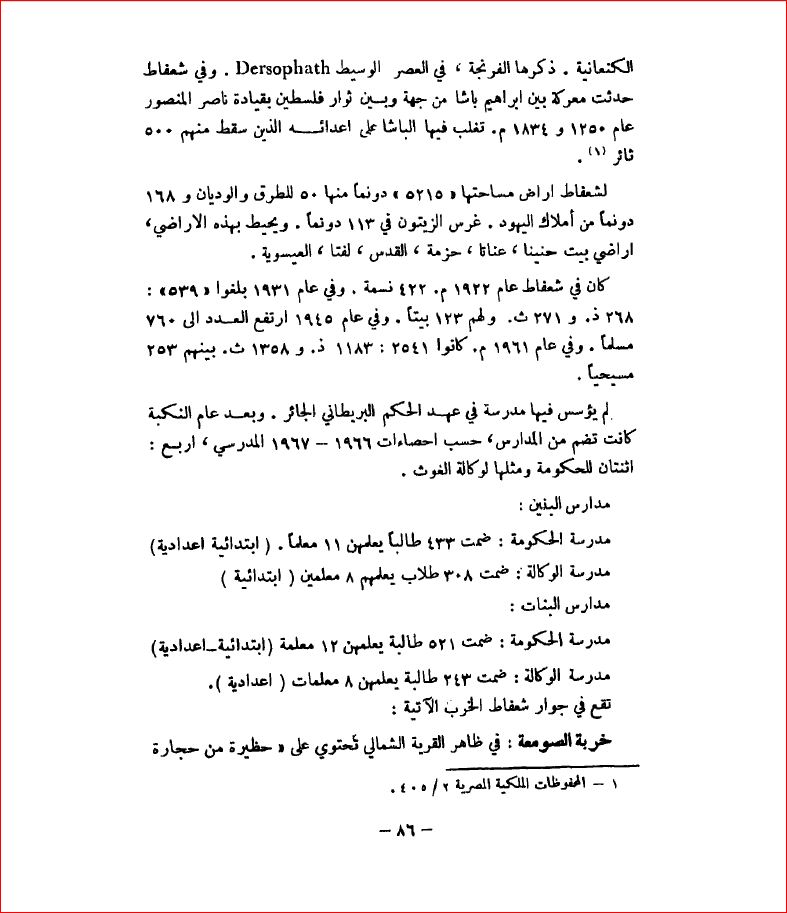 الكنعانية . ذكرها الفرنجة ، في العصر الوسيط Dersophath . وفي شعفاط
حدثت معركة بين ابراهيم باشا من جهة وبـين ثوار فلسطين بقيادة ناصر المنصور
عام ١٢٥٠ و ١٨٣٤ م. تغلب فيها الباشا على اعدائـــه الذين سقط منهم ٥٠٠
ثائر (١) .
لشعفاط اراض مساحتها « ٥٢١٥ » دونماً منها ٥٠ للطرق والوديان و ١٦٨
دونماً من أملاك اليهود . غرس الزيتون في ١١٣ دونماً . ويحيط بهذه الاراضي،
اراضي بيت حنينا ، عناتا ، حزمة ، القدس ، لفتا ، العيسوية .
كان في شعفاط عام ١٩٢٢ م. ٤٢٢ نسمة . وفي عام ١٩٣١ بلغوا « ٥٣٩» :
٢٦٨ ذ. و ٢٧١ ث. ولهم ١٢٣ بيتاً . وفي عام ١٩٤٥ ارتفع العـدد الى ٧٦٠
مسلماً . وفي عام ١٩٦١ م. كانوا ٢٥٤١ : ١١٨٣ ذ. و ١٣٥٨ ث. بينهم ٢٥٣
مسيحياً .
لم يؤسس فيها مدرسة في عهـد الحكم البريطاني الجائر . وبعـد عام النكبة
كانت تضم من المدارس، حسب احصاءات ١٩٦٦ – ١٩٦٧ المدرسي ، اربـع :
اثنتان للحكومة ومثلها لوكالة الغوث .
مدارس البنين :
مدرسة الحكومة : ضمت ٤٣٣ طالباً يعلمهن ١١ معلماً . ( ابتدائية اعدادية)
مدرسة الوكالة : ضمت ٣٠٨ طلاب يعلمهم ٨ معلمين ( ابتدائية )
مدارس البنات :
مدرسة الحكومة : ضمت ٥٢١ طالبة يعلمهن ١٢ معلمة (ابتدائية–اعدادية)
مدرسة الوكالة : ضمت ٢٤٣ طالبة يعلمهن ٨ معلمات ( اعدادية ).
تقع في جوار شعفاط الخرب الآتية :
خربة الصومعة : في ظاهر القرية الشمالي تحتوي على « حظيرة من حجارة
١ – المحفوظات الملكية المصرية ٢ / ٤٠٥ .
– ٨٦ –